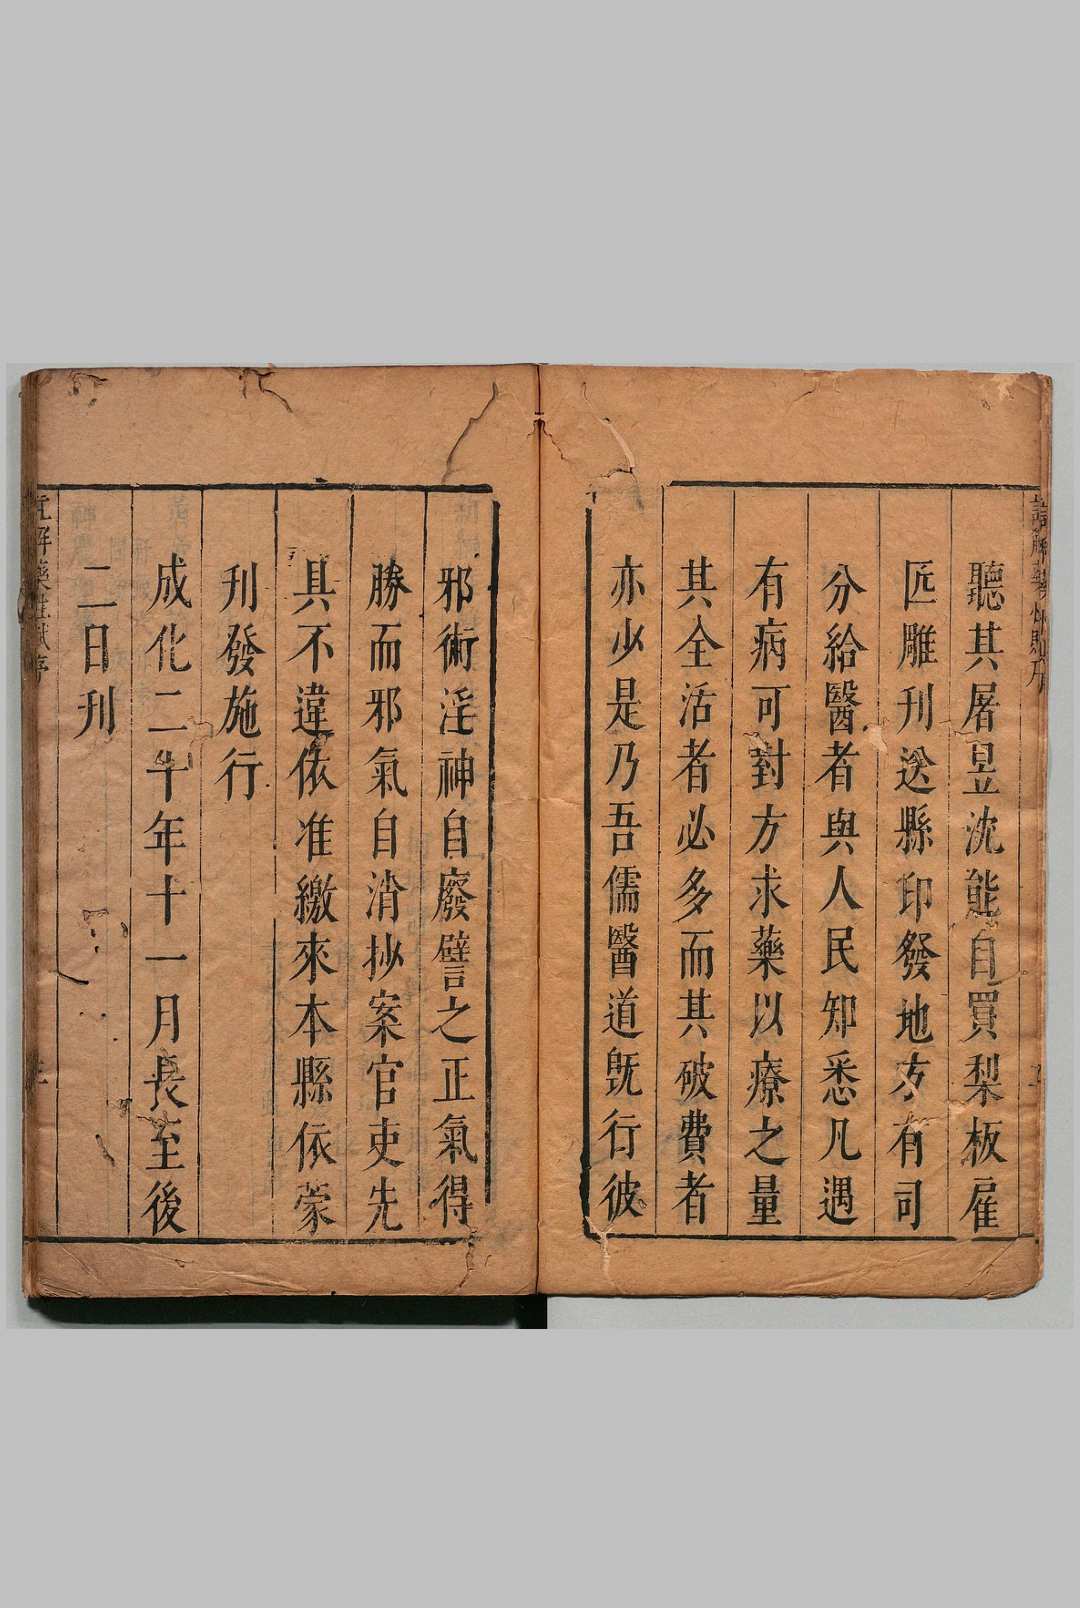 聽其屠昱沈能自買梨板雇
匠雕刊送縣印發地方有司
分給醫者與人民知悉凡遇
有病可對方求藥以療之量
其全活者必多而其破費者
亦少是乃吾儒醫道既行彼
邪術淫神自廢譬之正氣得
勝而邪氣自消抄案官吏先
具不違依准繳來本縣依蒙
刊發施行
成化二年年十一月長至後
二日刊
註解藥性賦序